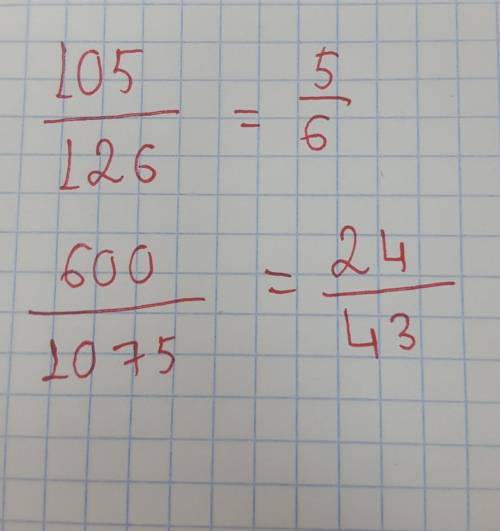 105/126 = 5/6
600/1075 = 24/43